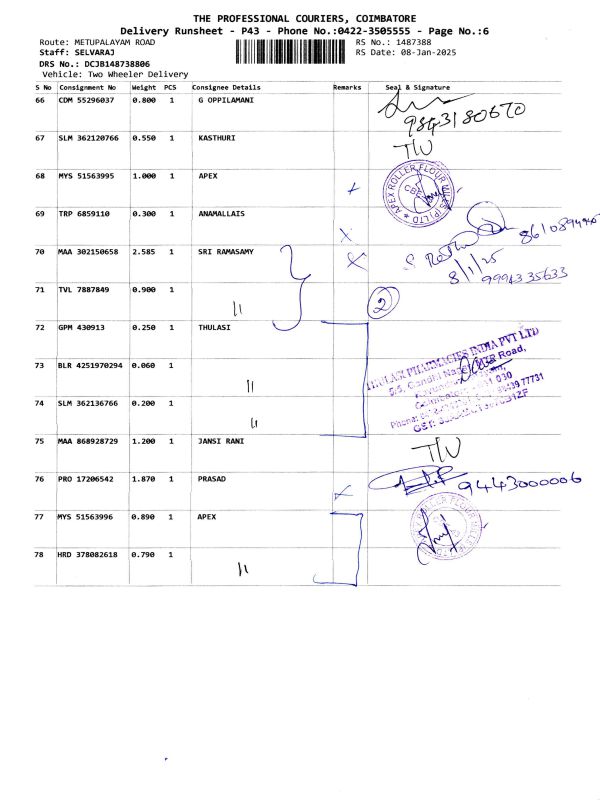 THE PROFESSIONAL COURIERS, COIMBATORE
Delivery Runsheet - P43 - Phone No.:0422-3505555 - Page No.:6
Route: METUPALAYAM ROAD RS No.: 1487388
Staff: SELVARAJ RS Date: 08-Jan-2025
DRS No.: DCJB148738806
Vehicle: Two Wheeler Delivery
S No Consignment No Weight PCS Consignee Details Remarks Seal & Signature
66 CDM 55296037 0.800 1 G OPPILAMANI
9843180670
67 SLM 362120766 0.550 1 KASTHURI
68 MYS 51563995 1.000 1 APEX
APEX ROLLER FLOUR MILLS (P) LTD
69 TRP 6859110 0.300 1 ANAMALLAIS
70 MAA 302150658 2.585 1 SRI RAMASAMY
8/1/25
9994335633
71 TVL 7887849 0.900 1 11
2
72 GPM 430913 0.250 1 THULASI
PHARMACIES INDIA PVT LTD
73 BLR 4251970294 0.060 1 11
Road,
74 SLM 362136766 0.200 1 11
75 MAA 868928729 1.200 1 JANSI RANI
76 PRO 17206542 1.870 1 PRASAD
9443000006
77 MYS 51563996 0.890 1 APEX
ROLLER FLOUR
78 HRD 378082618 0.790 1 11